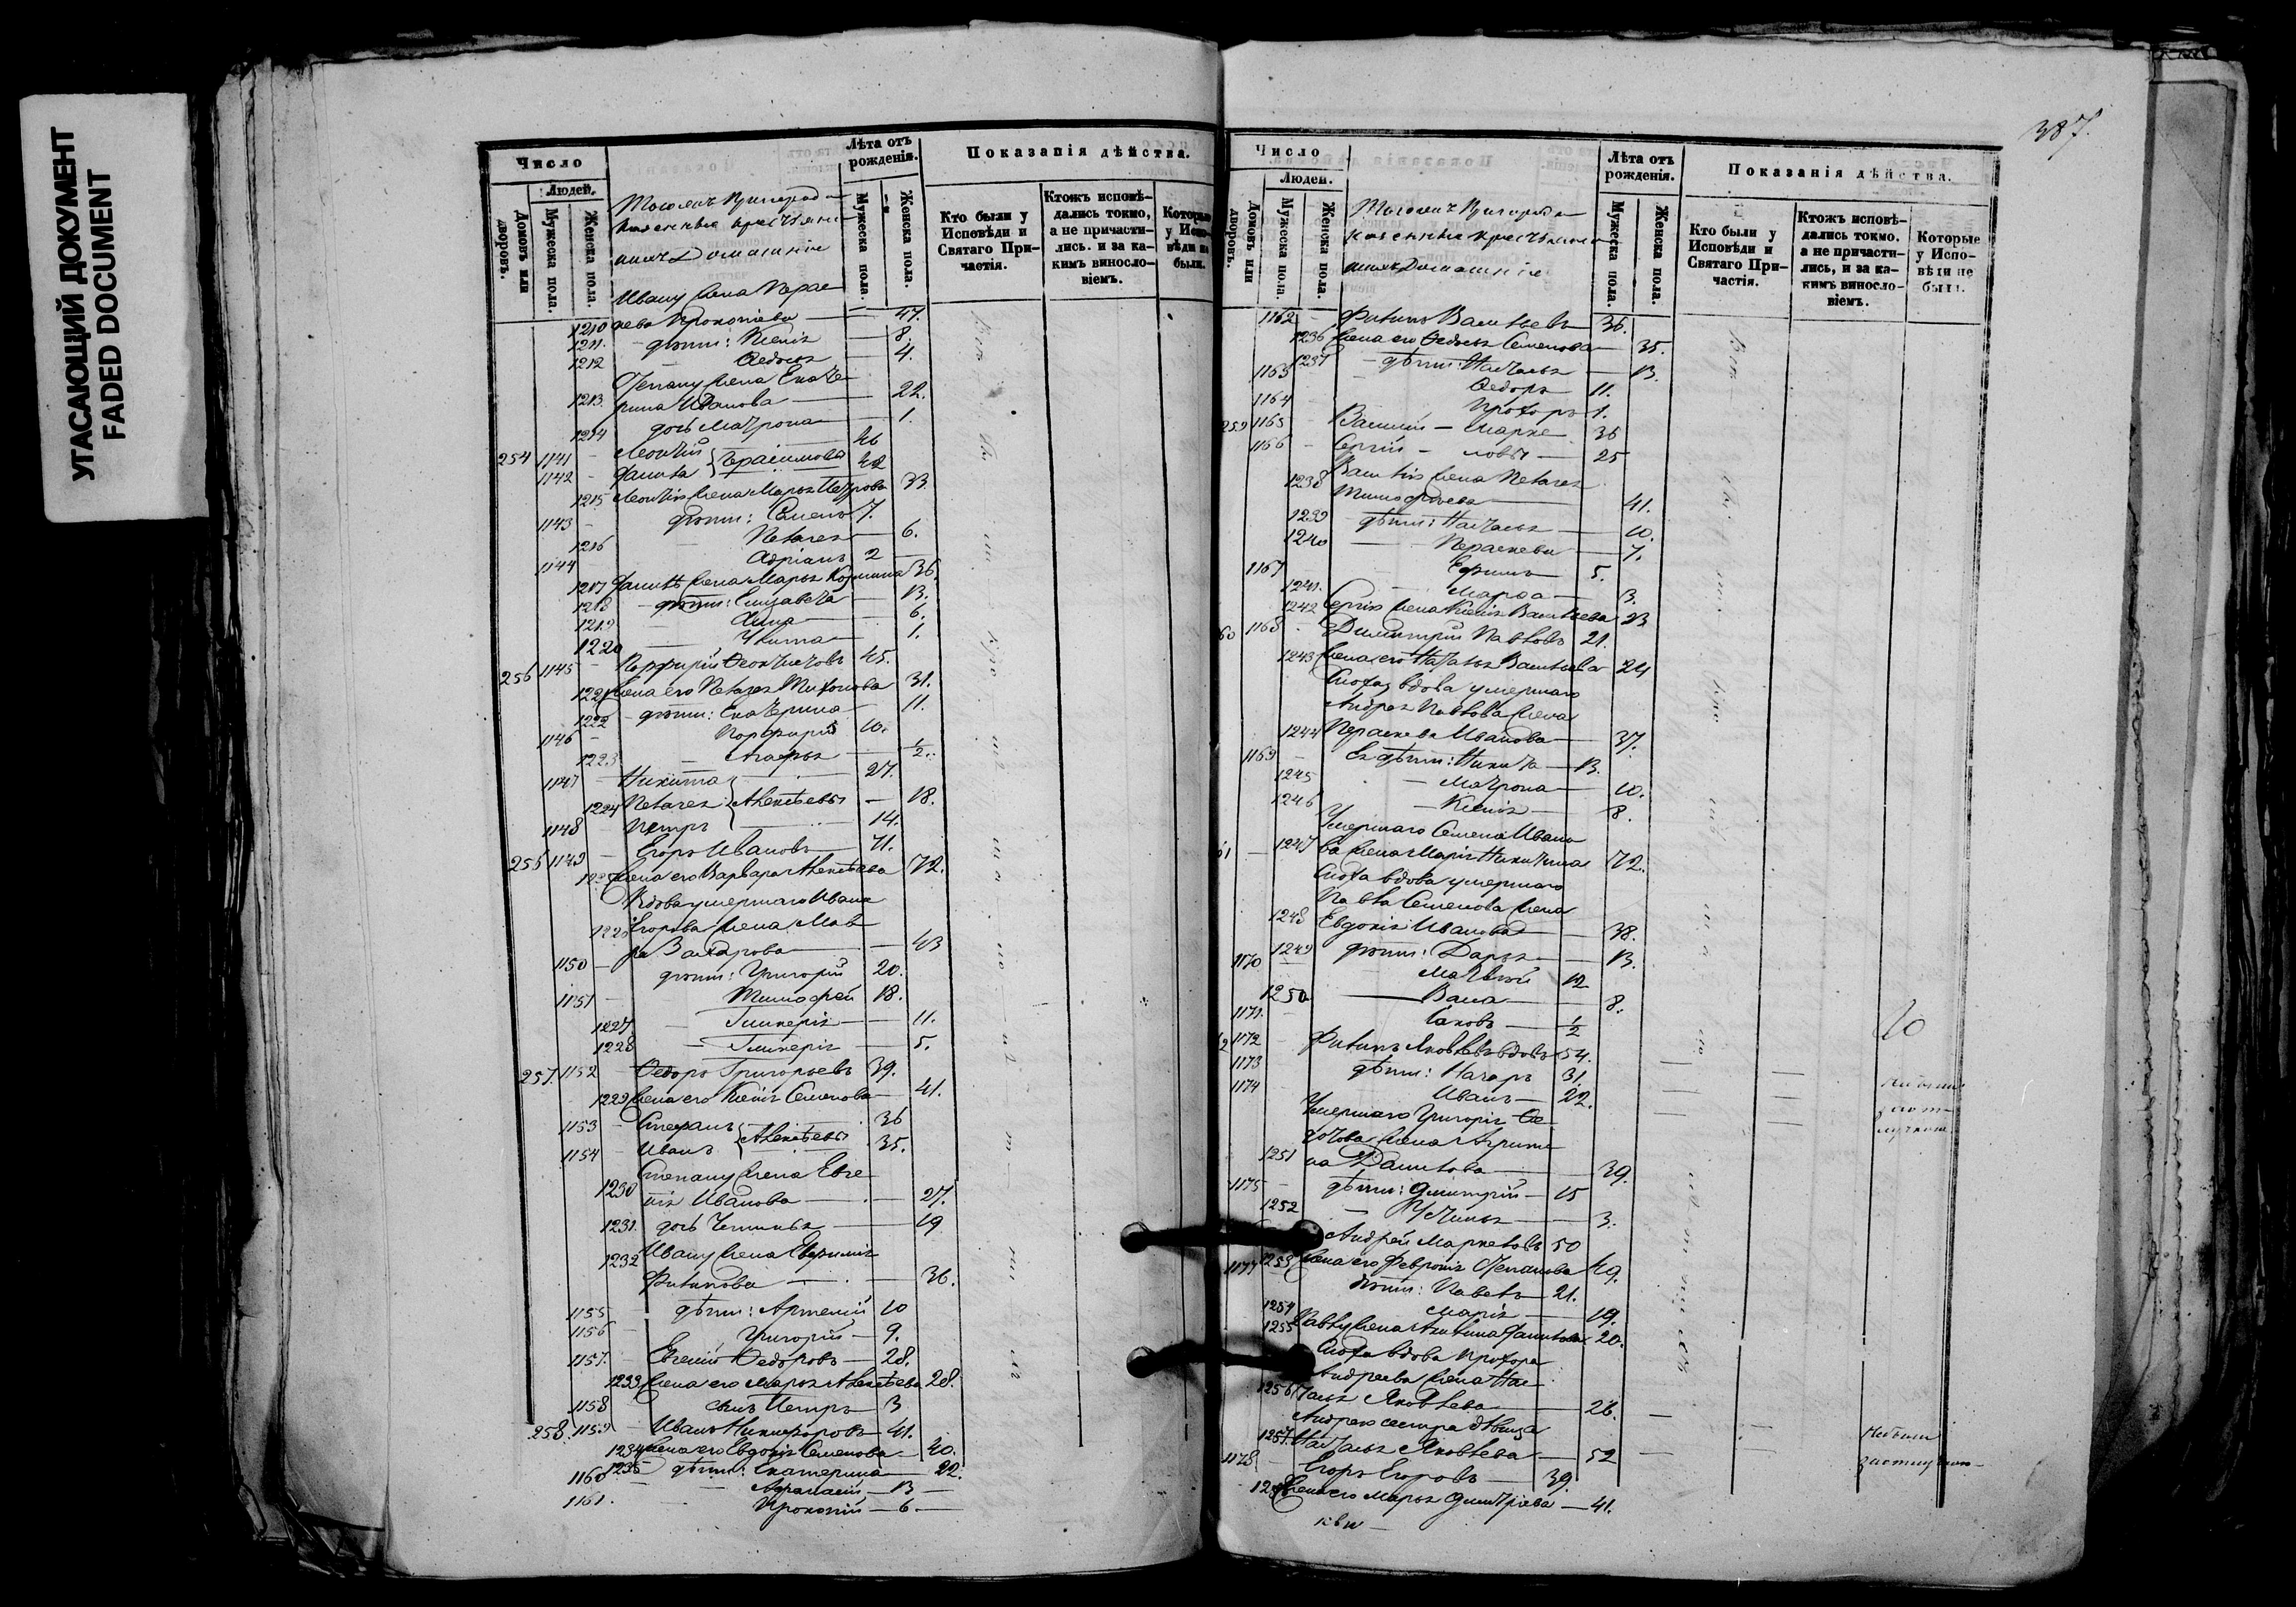 УГАСАЮЩИЙ ДОКУМЕНТ
FADED DOCUMENT
Число
Людей.
Домовъ или дворовъ.
Мужеска пола.
Женска пола.
крестьяне
и ихъ Домашніе
Лѣта отъ рожденія.
Мужеска пола.
Женска пола.
Показанія дѣйства.
Кто были у Исповѣди и Святаго Причастія.
Ктожъ исповѣдались токмо, а не причастились. и за какимъ винословіемъ.
Которые у Исповѣди не были.
Ивану жена Парас
1210 кева Прокопіева 47.
1211. дѣти: Ксенія 8.
1212 Ѳедосья 4.
Степану жена Екате
1213. рина Иванова 22.
1214 дочь Матрона 1.
254 1141 Леонтій 46
1142 Данила Герасимовы 42
1215 Леонтія жена Марья Петрова 33
1143 дѣти: Семенъ 7.
1216 Пелагея 6.
1144 Адріанъ 2
1217 Данилѣ жена Марья Козмина 36.
1218 дѣти: Елизавета 13.
1219 Анна 6.
1220 Улита 1.
256 1145 Порфирій Ѳеоктистовъ 45.
1221 Жена его Пелагея Тихонова 31.
1222 дѣти: Екатерина 11.
1146 Порфирій 10.
1223 Агафья 1/2.
1147 Никита 27.
1224 Пелагея Алексѣевы 18.
1148 Петръ 14.
255 1149 Егоръ Ивановъ 71.
1225 Жена его Варвара Алексѣева 72.
Вдова умершаго Ивана
1226 Егорова жена Мав
ра Захарова 43
1150 дѣти: Григорій 20.
1151 Тимофей 18.
1227 Гликерія 11.
1228 Гликерія 5.
257. 1152 Ѳедоръ Григорьевъ 39.
1229 Жена его Ксенія Семенова 41.
1153 Степанъ 36
1154 Иванъ Алексѣевы 35.
Степану жена Евге
1230 нія Иванова 27.
1231. дочь 19
1232 Ивану жена Евфимія
Филипова 36.
1155 дѣти: Артемій 10
1156 Григорій 9.
1157. Евгеній Ѳедоровъ 28.
1233 Жена его Марья Алексѣева 28.
1158 сынъ Петръ 3
258. 1159 Иванъ Никифоровъ 41.
1234 Жена его Евдокія Семенова 40.
1235 дѣти: Екатерина 22.
1160 Афанасій 13
1161. Прокопій 6
387.
Число
Людей.
Домовъ или дворовъ.
Мужеска пола.
Женска пола.
крестьяне
и ихъ Домашніе
Лѣта отъ рожденія.
Мужеска пола.
Женска пола.
Показанія дѣйства.
Кто были у Исповѣди и Святаго Причастія.
Ктожъ исповѣдались токмо. а не причастились, и за какимъ винословіемъ.
Которые у Исповѣди не были.
1162 Филипъ Васильевъ 36.
1236 Жена его Ѳедосья Семенова 35.
1237 дѣти: Наталья 13.
1163 Ѳедоръ 11.
1164 Прохоръ 1.
259 1165 Василій Марке 36
1166 Сергій ловы 25
Василія жена Пелагея
1238 Тимофѣева 41.
1239 дѣти: Наталья 10.
1240 Параскева 7.
1167 Ефимъ 5.
1241. Марѳа 3.
1242 Сергія жена Ксенія Васильева 23
60 1168 Димитрій Павловъ 21.
1243 Жена его Наталья Васильева 24
Сноха, вдова умершаго
Андрея Павлова жена
1244 Параскева Иванова 37.
1169 Ея дѣти: Никита 13.
1245 Матрона 10.
1246 Ксенія 8.
Умершаго Семена Ивано
61 1247 ва жена Марія Никитина 72.
Сноха вдова умершаго
Павла Семенова жена
1248 Евдокія Иванова 38.
1249 дѣти: Дарья 13.
1170 Матвѣй 12
1250 Васа 8.
1171. Іаковъ 1/2
2 1172 Филипъ Яковлевъ вдовъ 54.
1173 дѣти: Назаръ 31.
1174 Иванъ 22.
Умершаго Григорія Ѳе
дотова жена Агрипи
1251 на Данилова 39.
1175 дѣти: Димитрій 15
1252 Устинья 3.
Андрей Маркеловъ 50
1177 1253 Жена его Февронія Степанова 49.
дѣти: Павелъ 21.
1254 Марія 19.
1255 Павлу жена Акилина Данилова 20.
Сноха вдова Прохора
Андреева жена На
1256 талья Яковлева 26.
Андрею сестра дѣвица
1257. Наталья Яковлева 52
1178 Егоръ Егоровъ 39.
1258 Жена его Марья Димитріева 41.
Небыли
за отлучкою